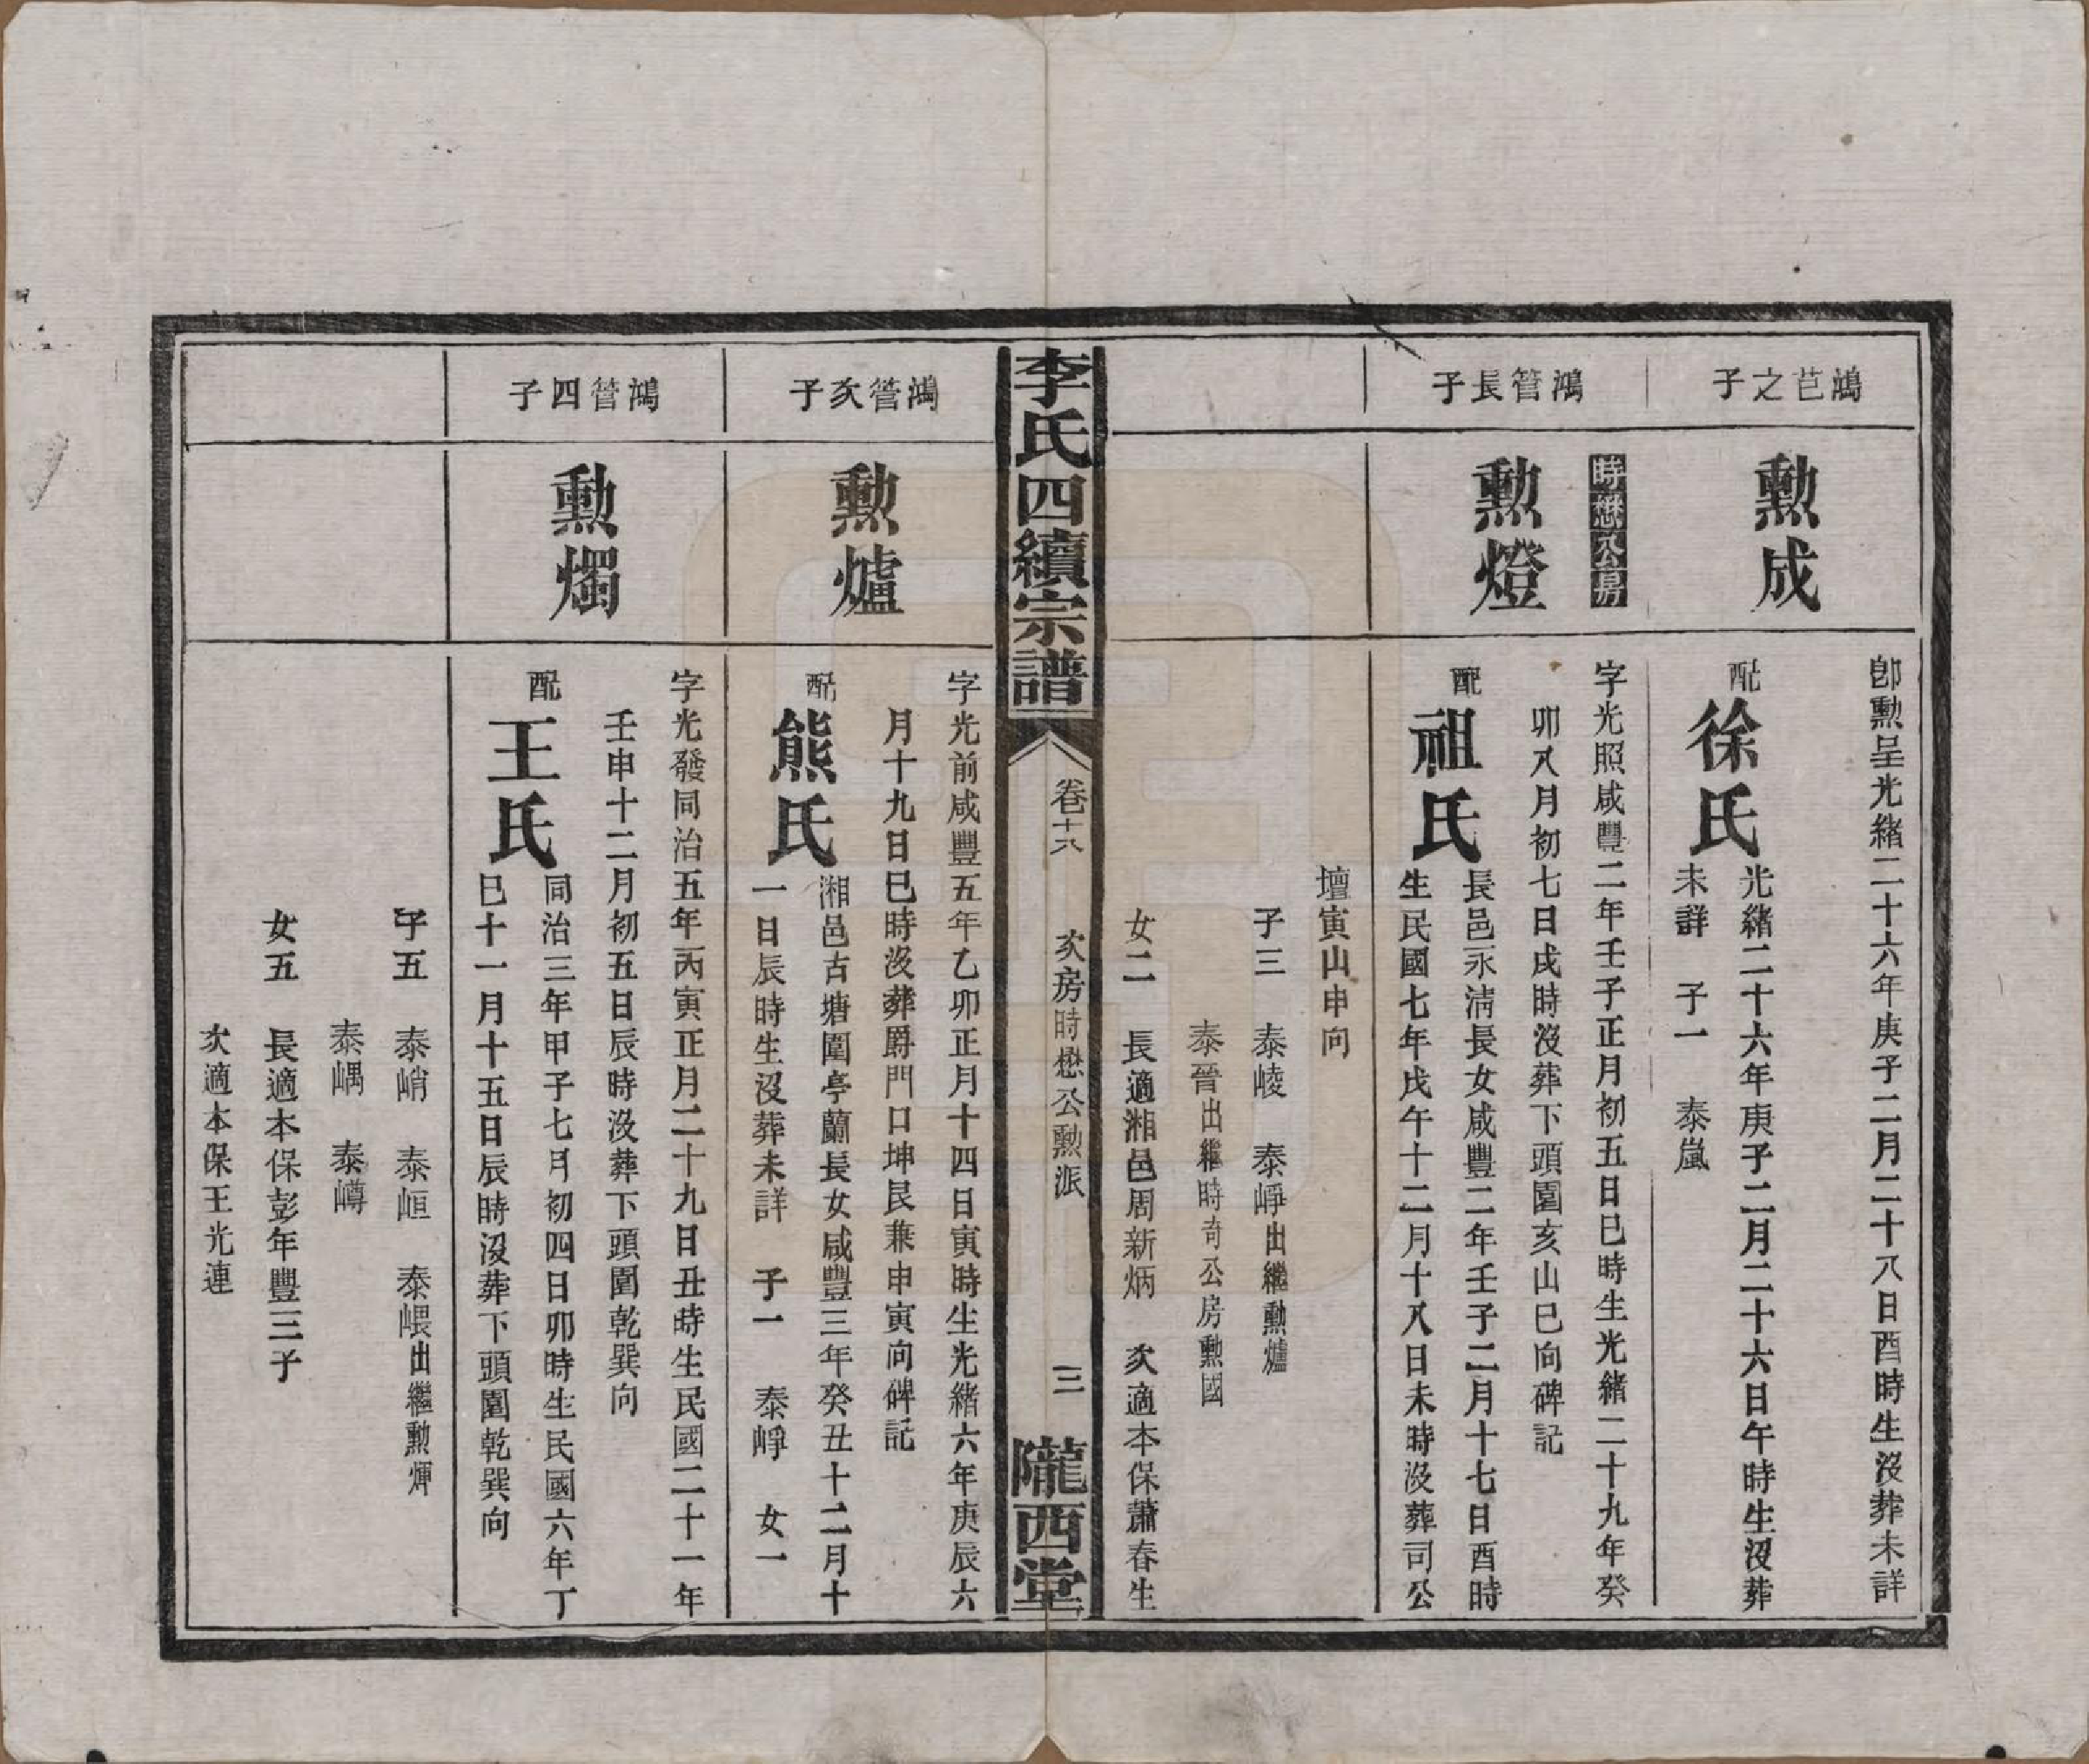 鴻芑之子
勲成
卽勲呈光緒二十六年庚子二月二十八日酉時生沒葬未詳
配徐氏
光緒二十六年庚子二月二十六日午時生沒葬
未詳 子一 泰嵐
時懋公房
鴻管長子
勲燈
字光照咸豐二年壬子正月初五日巳時生光緒二十九年癸
卯八月初七日戌時沒葬下頭園亥山巳向碑記
配祖氏
長邑永淸長女咸豐二年壬子二月十七日酉時
生民國七年戊午十二月十八日未時沒葬司公
壇寅山申向
子三 泰崚 泰崢出繼勲爐
泰晉出繼時奇公房勲國
女二 長適湘邑周新炳 次適本保蕭春生
李氏四續宗譜
卷十八
次房時懋公勲派
三
隴西堂
鴻管次子
勲爐
字光前咸豐五年乙卯正月十四日寅時生光緒六年庚辰六
月十九日巳時沒葬爵門口坤艮兼申寅向碑記
配熊氏
湘邑古塘圍亭蘭長女咸豐三年癸丑十二月十
一日辰時生沒葬未詳 子一 泰崢 女一
鴻管四子
勲燭
字光發同治五年丙寅正月二十九日丑時生民國二十一年
壬申十二月初五日辰時沒葬下頭園乾巽向
配王氏
同治三年甲子七月初四日卯時生民國六年丁
巳十一月十五日辰時沒葬下頭園乾巽向
子五 泰峭 泰峘 泰喂出繼勲煇
泰嵎 泰嶟
女五 長適本保彭年豐三子
次適本保王光連